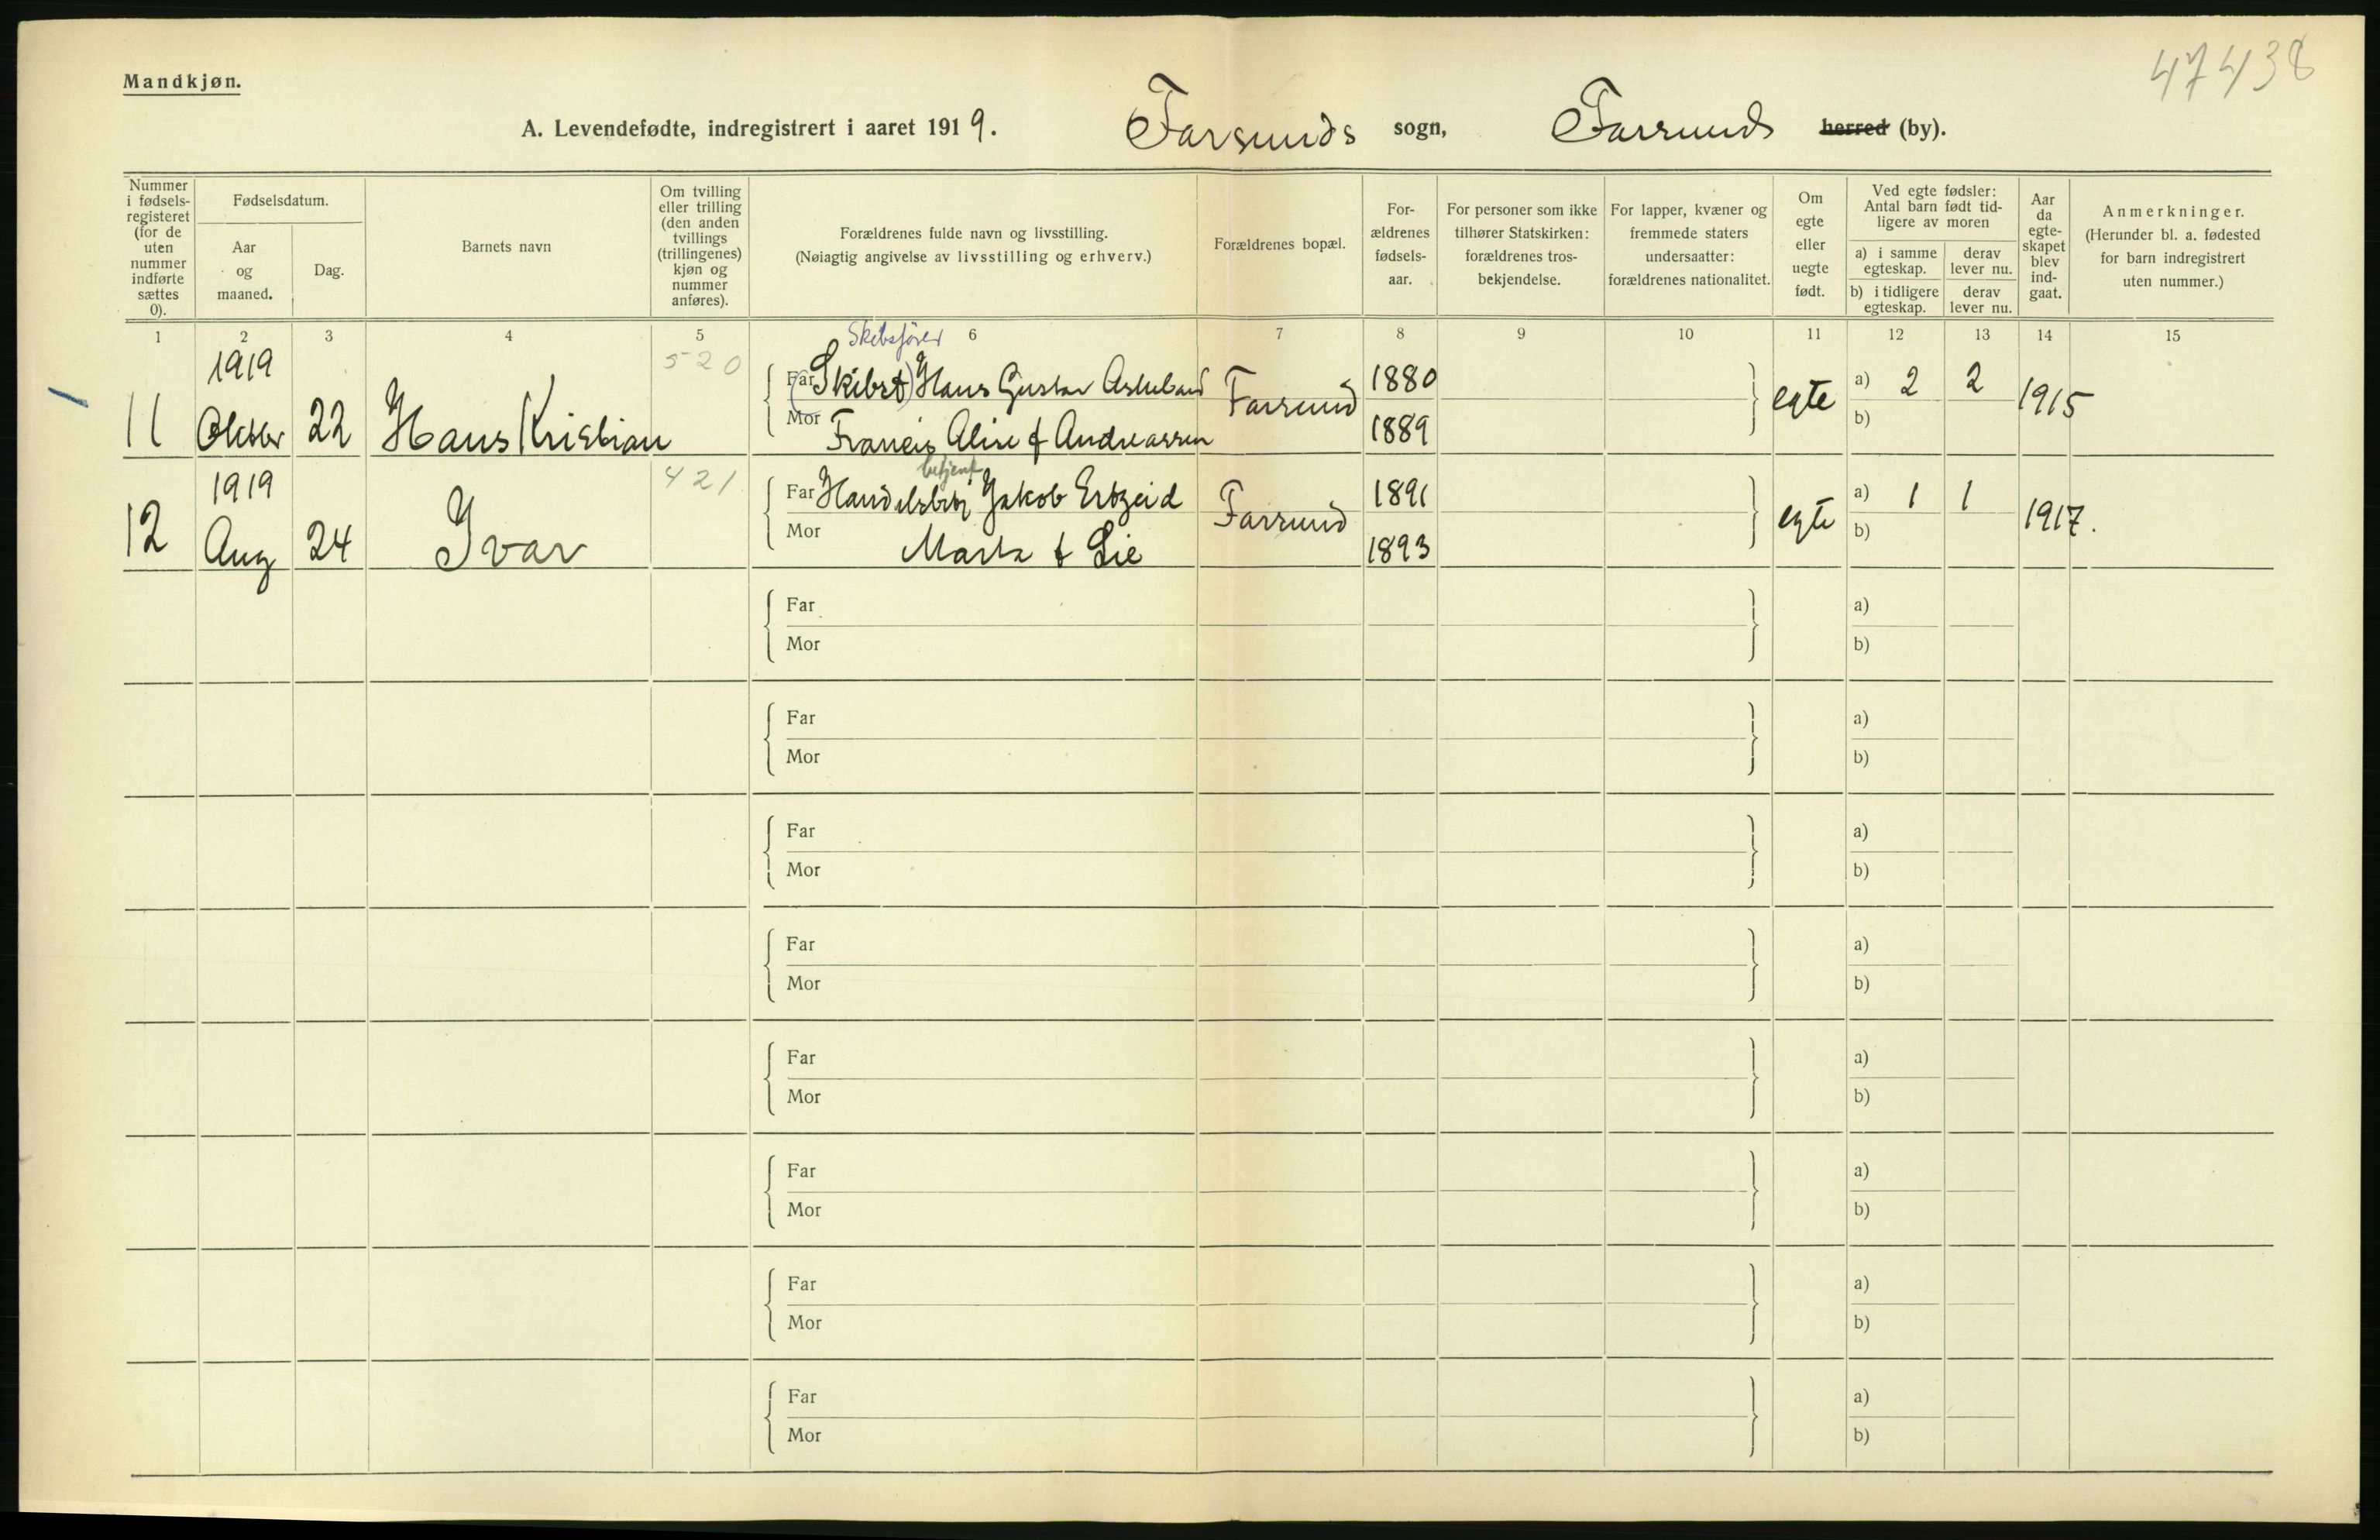 47438
Mandkjøn.
A. Levendefødte, indregistrert i aaret 1919. Farsunds sogn, Farsunds herred (by).
Nummer i fødsels-registeret (for de uten nummer indførte sættes 0).
Fødselsdatum.
Aar og maaned.
Dag.
Barnets navn
Om tvilling eller trilling (den anden tvillings (trillingenes) kjøn og nummer anføres).
Forældrenes fulde navn og livsstilling.
(Nøiagtig angivelse av livsstilling og erhverv.)
Forældrenes bopæl.
For-ældrenes fødsels-aar.
For personer som ikke tilhører Statskirken: forældrenes tros-bekjendelse.
For lapper, kvæner og fremmede staters undersaatter: forældrenes nationalitet.
Om egte eller uegte født.
Ved egte fødsler: Antal barn født tid-ligere av moren
a) i samme egteskap.
derav lever nu.
b) i tidligere egteskap.
derav lever nu.
Aar da egte-skapet blev ind-gaat.
Anmerkninger.
(Herunder bl. a. fødested for barn indregistrert uten nummer.)
1 2 3 4 5 6 7 8 9 10 11 12 13 14 15
Skibsfører
1919 520 Far (Skibst) Hans Gustav 1880 a) 2 2
11 Oktbr 22 Hans Kristian Farsund egte 1915
Mor Francis Alise f Andreassen 1889 b)
betjent
1919 421 Far Handelsbetj Jakob Ertzeid 1891 a) 1 1
12 Aug 24 Ivar Farsund egte 1917.
Mor Marta f Lie 1893 b)
Far a)
Mor b)
Far a)
Mor b)
Far a)
Mor b)
Far a)
Mor b)
Far a)
Mor b)
Far a)
Mor b)
Far a)
Mor b)
Far a)
Mor b)